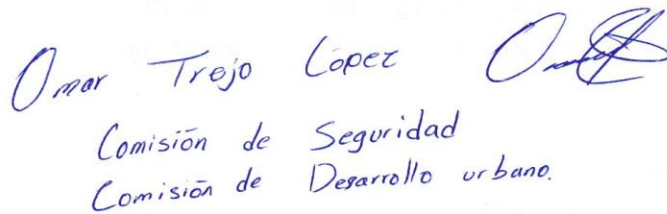 Omar Trejo López
Comisión de Seguridad
Comisión de Desarrollo urbano.